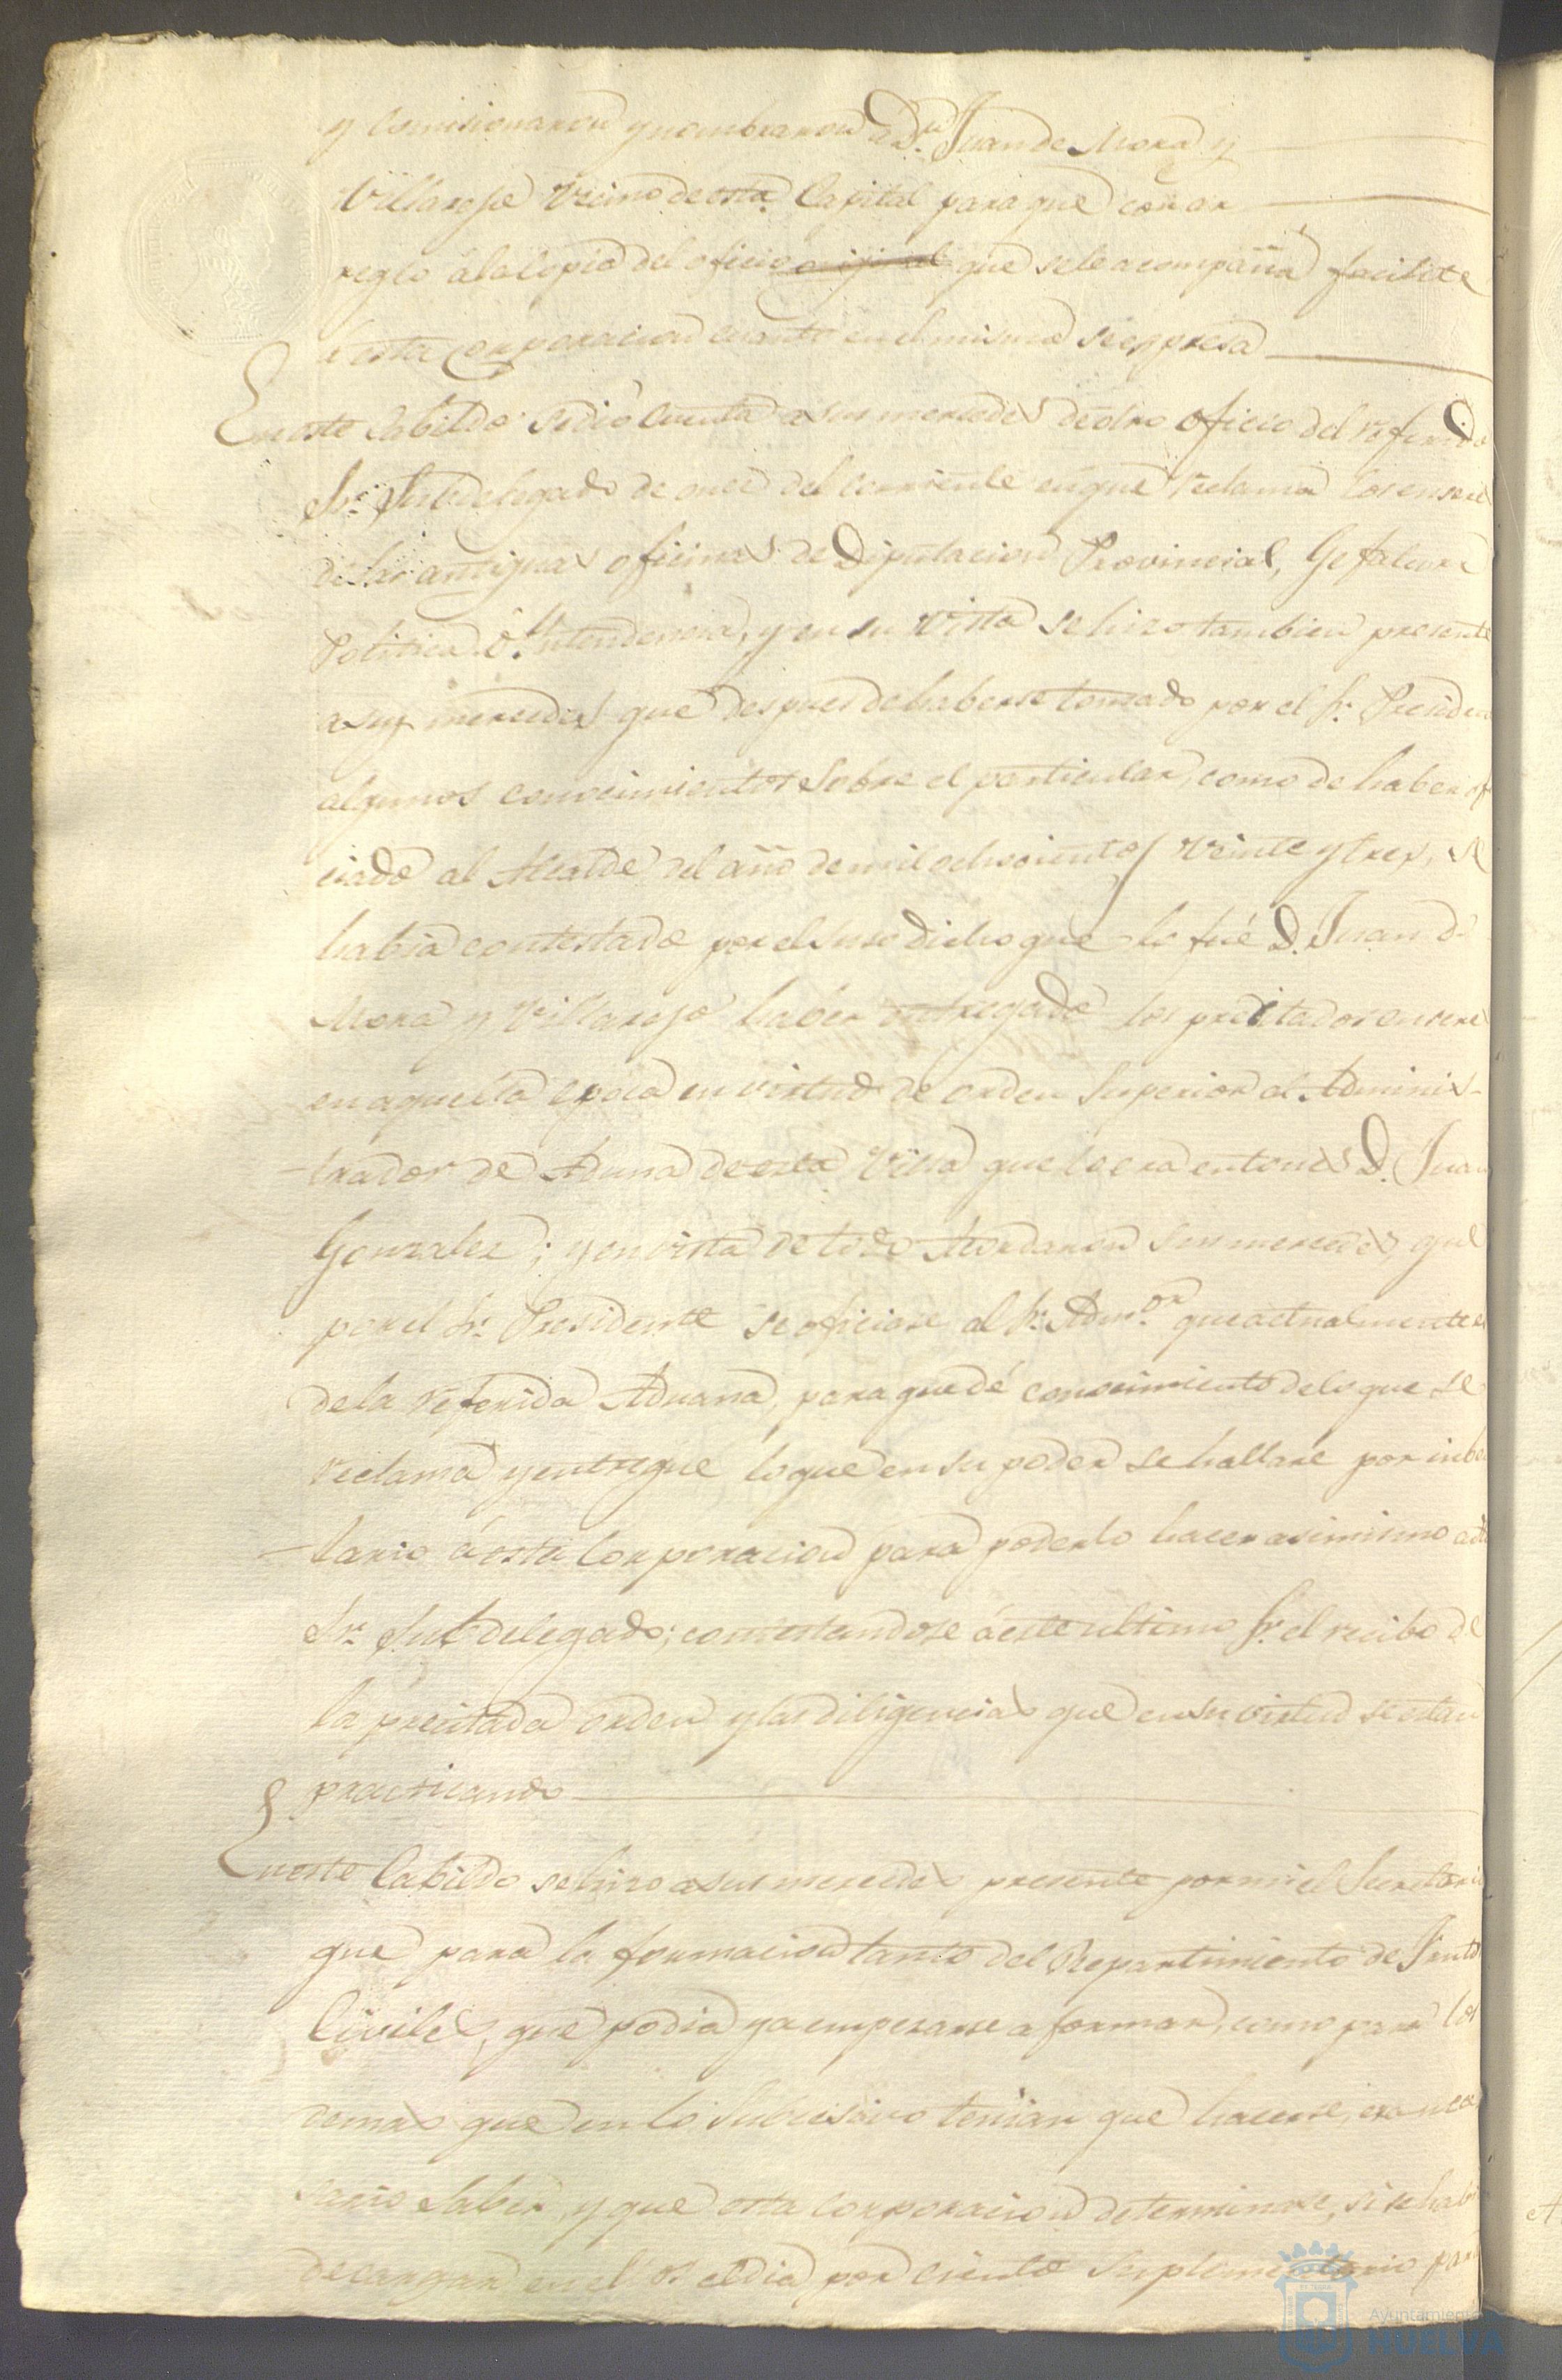 y comisionaron y nombraron á Dn. Juan de Mora y
Villarejo Vecino de esta Capital para que con ar
reglo á la copia del oficio original que se le acompaña facilite
á esta Corporacion cuanto en el mismo se espresa
En este Cabildo se dió cuenta a sus mercedes de otro oficio del referido
Sr. Subdelegado de once del corriente en que reclama los enseres
de las antiguas oficinas de Diputacion Provincial, Gefatura
Politica é Yntendencia, y en su vista se hizo tambien presente
a sus mercedes que despues de haberse tomado por el Sr. Presidente
algunos conocimientos sobre el particular, como de haber ofi
ciado al Alcalde del año de mil ochocientos veinte y tres, se
habia contestado por el susodicho que lo fué D. Juan de
Mora y Villarejo haber entregado los precitados enseres
en aquella epoca en virtud de orden superior al Adminis-
-trador de Aduna de esta Villa que lo era entonces D. Juan
Gonzalez; y en vista de todo Acordaron sus mercedes que
por el Sr. Presidente se oficiase al Sr. Admor. que actualmente es
de la referida Aduana, para que dé conocimiento de lo que se
reclama y entregue lo que en su poder se hallare por inben
-tario á esta Corporacion para poderlo hacer asimismo a dho
Sr. Subdelegado; contestandose á este ultimo Sr. el recibo de
la precitada orden y las diligencias que en su virtud se estan
practicando
En este Cabildo se hizo a sus mercedes presente por mi el Secretario
que para la formacion tanto del Repartimiento de Frutos
Civiles, que podia ya empezarse a formar, como para los
demas que en lo subcesivo tenian que hacerse, era nece
sario saber, y que esta corporacion determinase, si se habia
de cargar en el los el dia por ciento suplementario para
Ayuntamiento
HUELVA